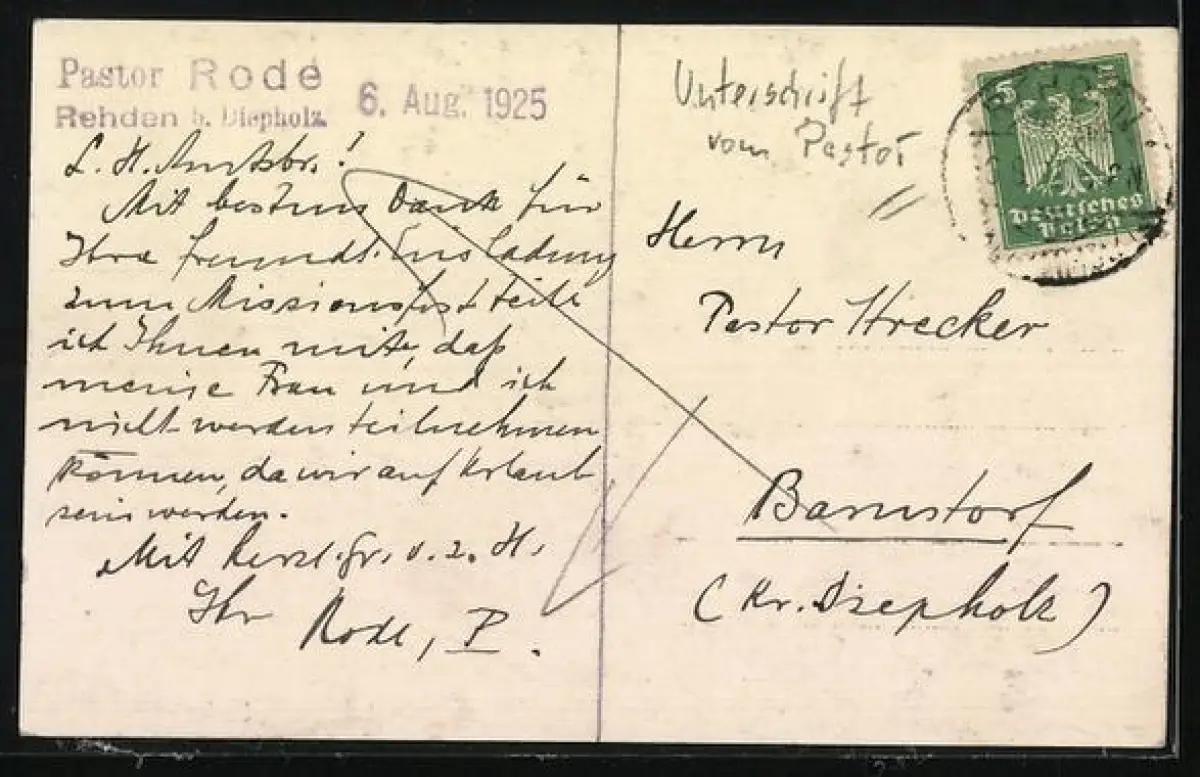 Pastor Rode
Rehden b. Diepholz.
6. Aug. 1925
L. H. Amtsbr.!
Mit bestem Dank für
Ihre freundl. Einladung
zum Missionsfest teile
ich Ihnen mit, daß
meine Frau und ich
nicht werden teilnehmen
können, da wir auf Urlaub
sein werden.
Mit herzl. Gr. v. z. H.
Ihr
Rode, P.
Unterschrift
vom Pastor
5
Deutsches
Reich
Herrn
Pastor Strecker
Barnstorf
(Kr. Diepholz)